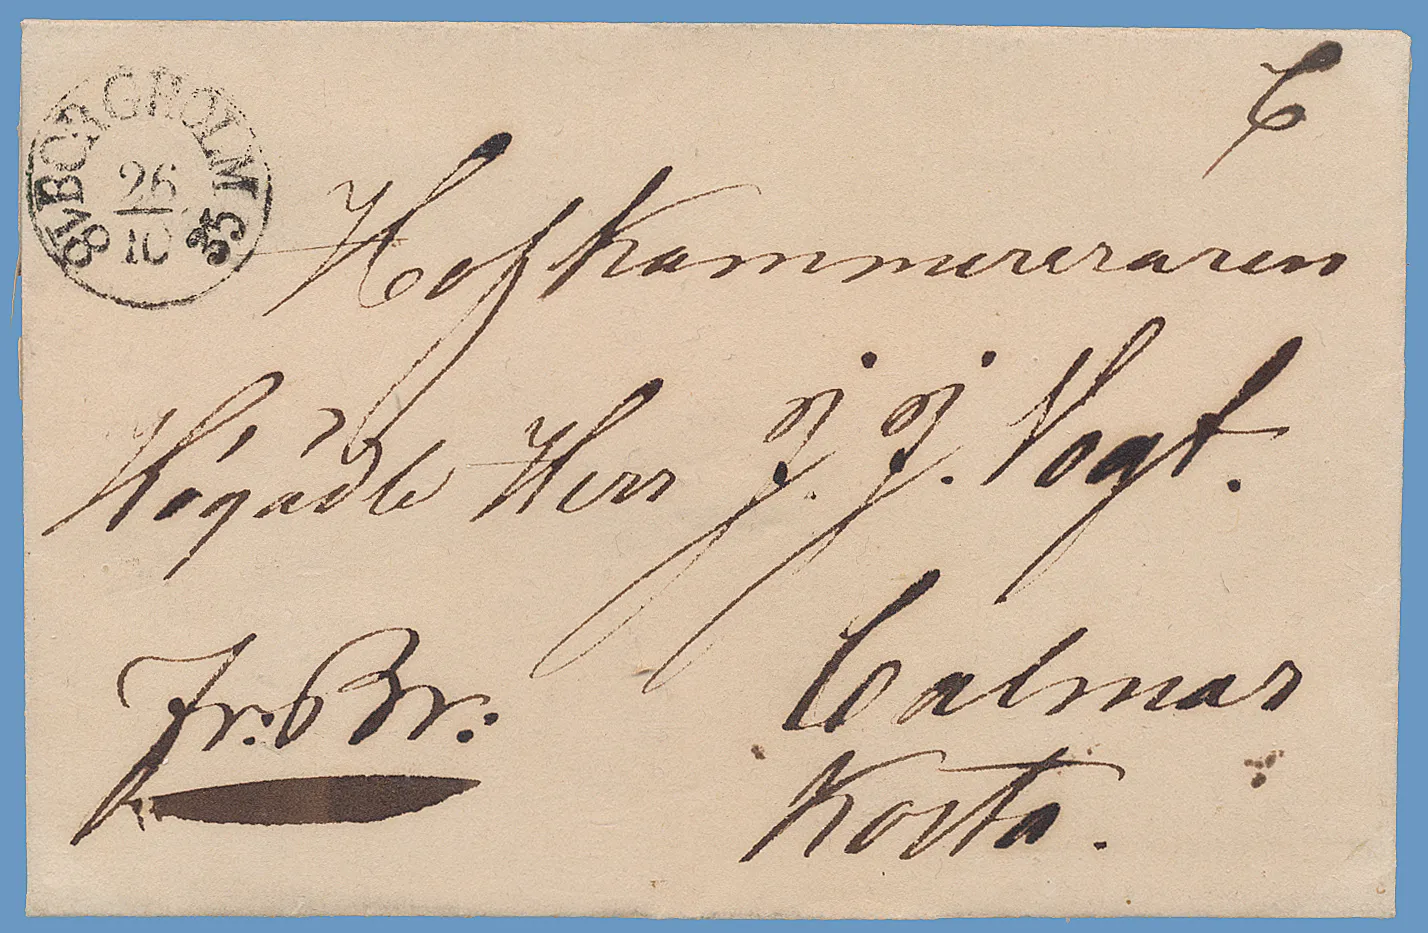 BORGHOLM
26
10
18 55
6
Hofkammereraren
Högädle Herr J. J. Vogt.
Fr: Br:
Calmar
Kosta.